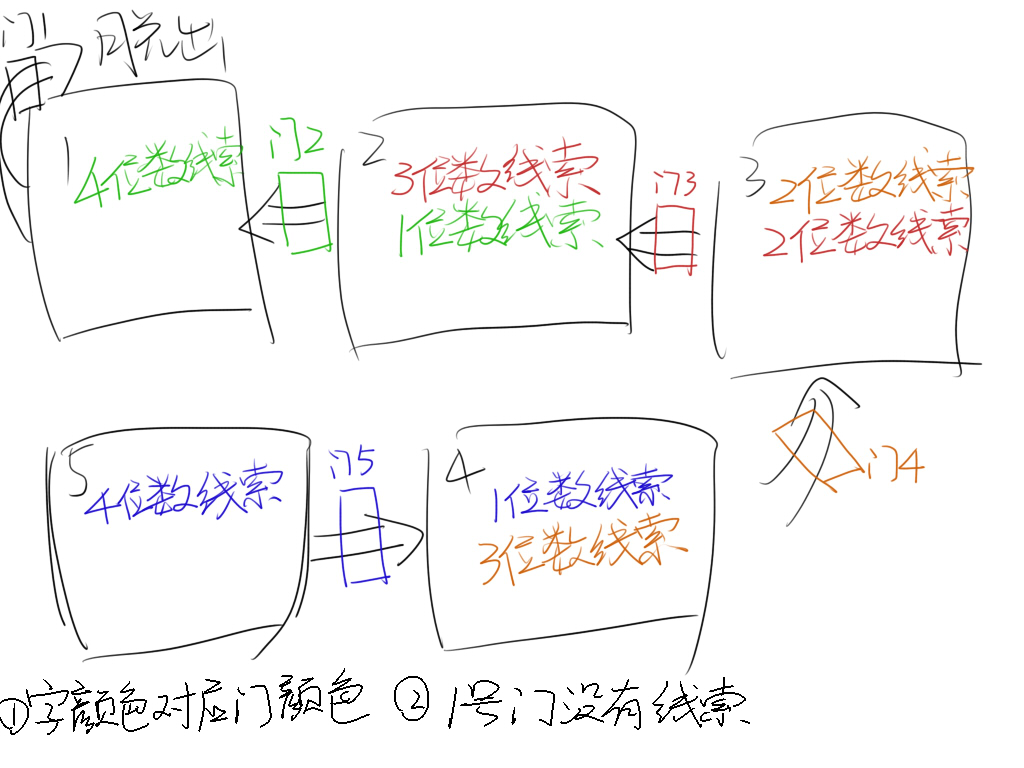 门1
脱出
1
4位数线索
门2
2
3位数线索
1位数线索
门3
3
2位数线索
2位数线索
5
4位数线索
门5
4
1位数线索
3位数线索
门4
①字颜色对应门颜色 ②1号门没有线索